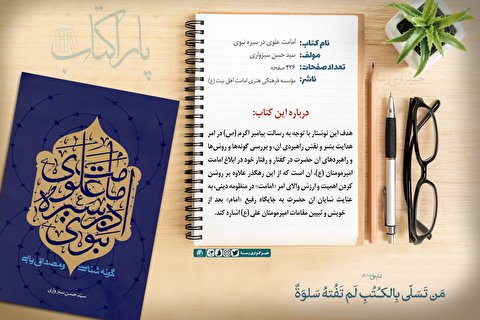 پاراکتاب
نام کتاب: امامت علوی در سیره نبوی
مولف: سید حسن سبزواری
تعداد صفحات: ۴۳۶ صفحه
ناشر: مؤسسه فرهنگی هنری امامت اهل بیت (ع)
درباره این کتاب:
هدف این نوشتار با توجه به رسالت پیامبر اکرم (ص) در امر
هدایت بشر و نقش راهبردی آن، و بررسی گونه‌ها و روش‌ها
و راهبردهای آن حضرت در گفتار و رفتار خود در ابلاغ امامت
امیرمومنان (ع)، آن است که از این رهگذر علاوه بر روشن
کردن اهمیت و ارزش والای امر «امامت» در منظومه دینی، به
عنایت شایان آن حضرت به جایگاه رفیع «امام» بعد از
خویش و تبیین مقامات امیرمومنان علی (ع) اشاره کند.
خبرگزاری رسا
امامت علوی در سیره نبوی
گونه شناسی و مصداق یابی
سید حسن سبزواری
امام علی علیه‌السلام
مَن تَسَلّى بِالكُتُبِ لَم تَفُتهُ سَلوَةٌ